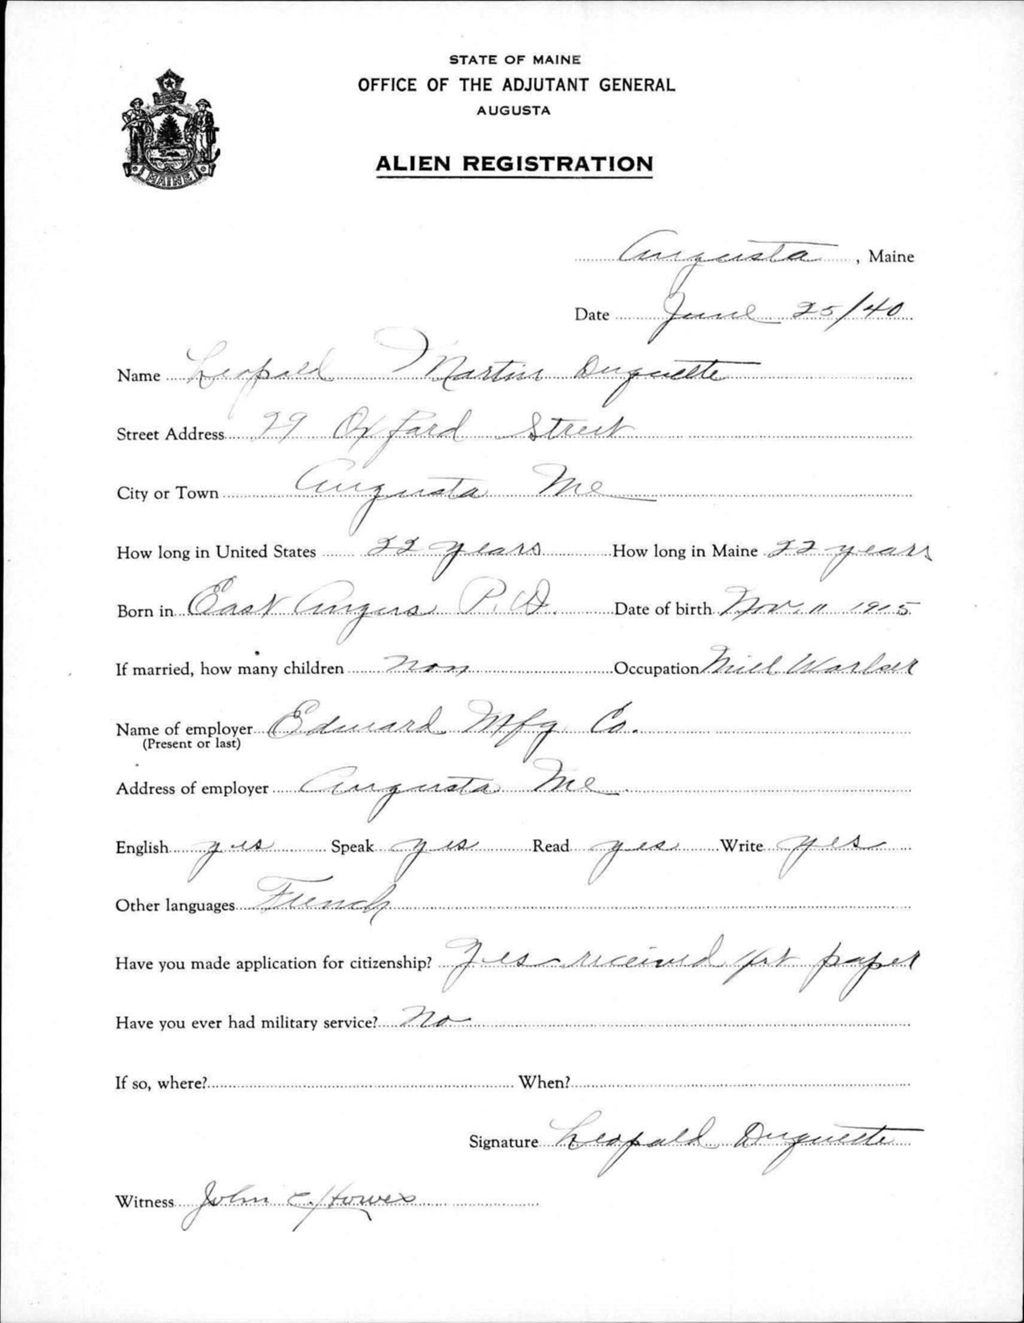 STATE OF MAINE
OFFICE OF THE ADJUTANT GENERAL
AUGUSTA
ALIEN REGISTRATION
MAINE
Augusta, Maine
Date June 25/40
Name Leopold Martin Duquette
Street Address 29 Oxford Street
City or Town Augusta Me
How long in United States 22 years How long in Maine 22 years
Born in East Angus P.Q. Date of birth Nov. 11 1915
If married, how many children non Occupation Mill Worker
Name of employer Edward Mfg Co.
(Present or last)
Address of employer Augusta Me
English yes Speak yes Read yes Write yes
Other languages French
Have you made application for citizenship? Yes received paper
Have you ever had military service? No
If so, where? When?
Signature Leopold Duquette
Witness John E. Howes